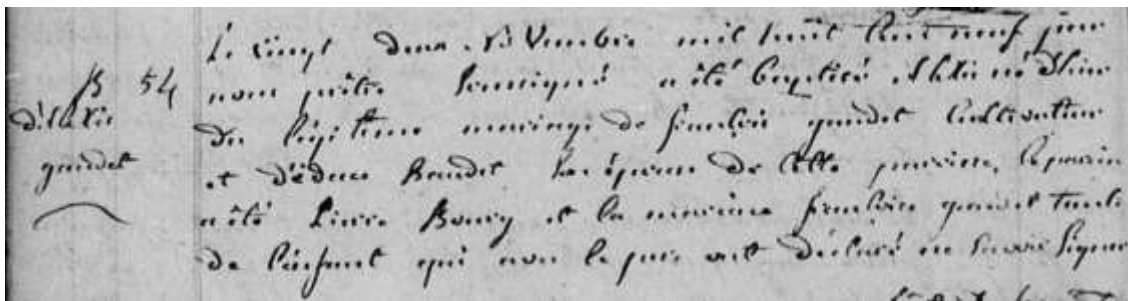 B 54
d'alexis
gaudet
Le vingt deux Novembre mil huit cent neuf par
nous prêtre soussigné a été baptisé alexis né d'hier
du légitime mariage de françois gaudet Cultivateur
et d' Baudet son épouse de cette paroisse, le parain
a été Pierre et la maraine françoise gaudet tante
de l'enfant qui avec le père ont déclaré ne savoir signer